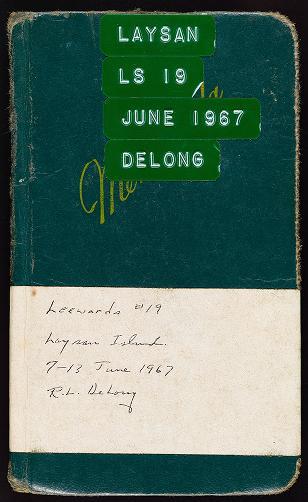 LAYSAN
LS 19
JUNE 1967
DELONG
Leewards #19
Laysan Island.
7-13 June 1967
R.L. DeLong